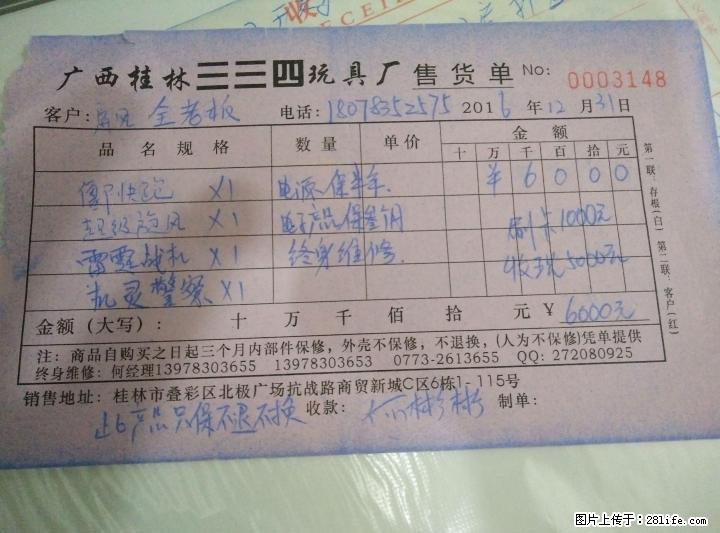 收
RECEI
广西桂林三三四玩具厂售货单 No: 0003148
客户: 全老板 电话: 18078352575 2016年12月31日
品名规格 数量 单价 金额
十 万 千 百 拾 元
快跑 X1 电源保半年. ¥ 6 0 0 0
超级旋风 X1 电子产品保叁个月 刷卡1000元
雷霆战机 X1 终身维修. 收现5000元
机灵警察 X1
金额(大写): 十 万 千 佰 拾 元 ¥ 6000元
注: 商品自购买之日起三个月内部件保修, 外壳不保修, 不退换, (人为不保修)凭单提供
终身维修: 何经理13978303653 13978303653 0773-2613655 QQ: 272080925
销售地址: 桂林市叠彩区北极广场抗战路商贸新城C区6栋1-115号
此产品只保不退不换 收款: 何彬彬 制单:
第一联: 存根(白) 第二联: 客户(红)
图片上传于: 28life.com